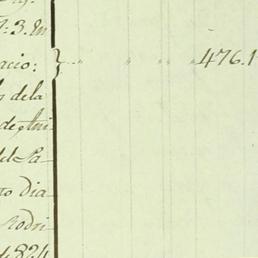 : 3. En
acio: } 476.1
s de la
de Ani
del Pa
to Dia
Rodri
de 824